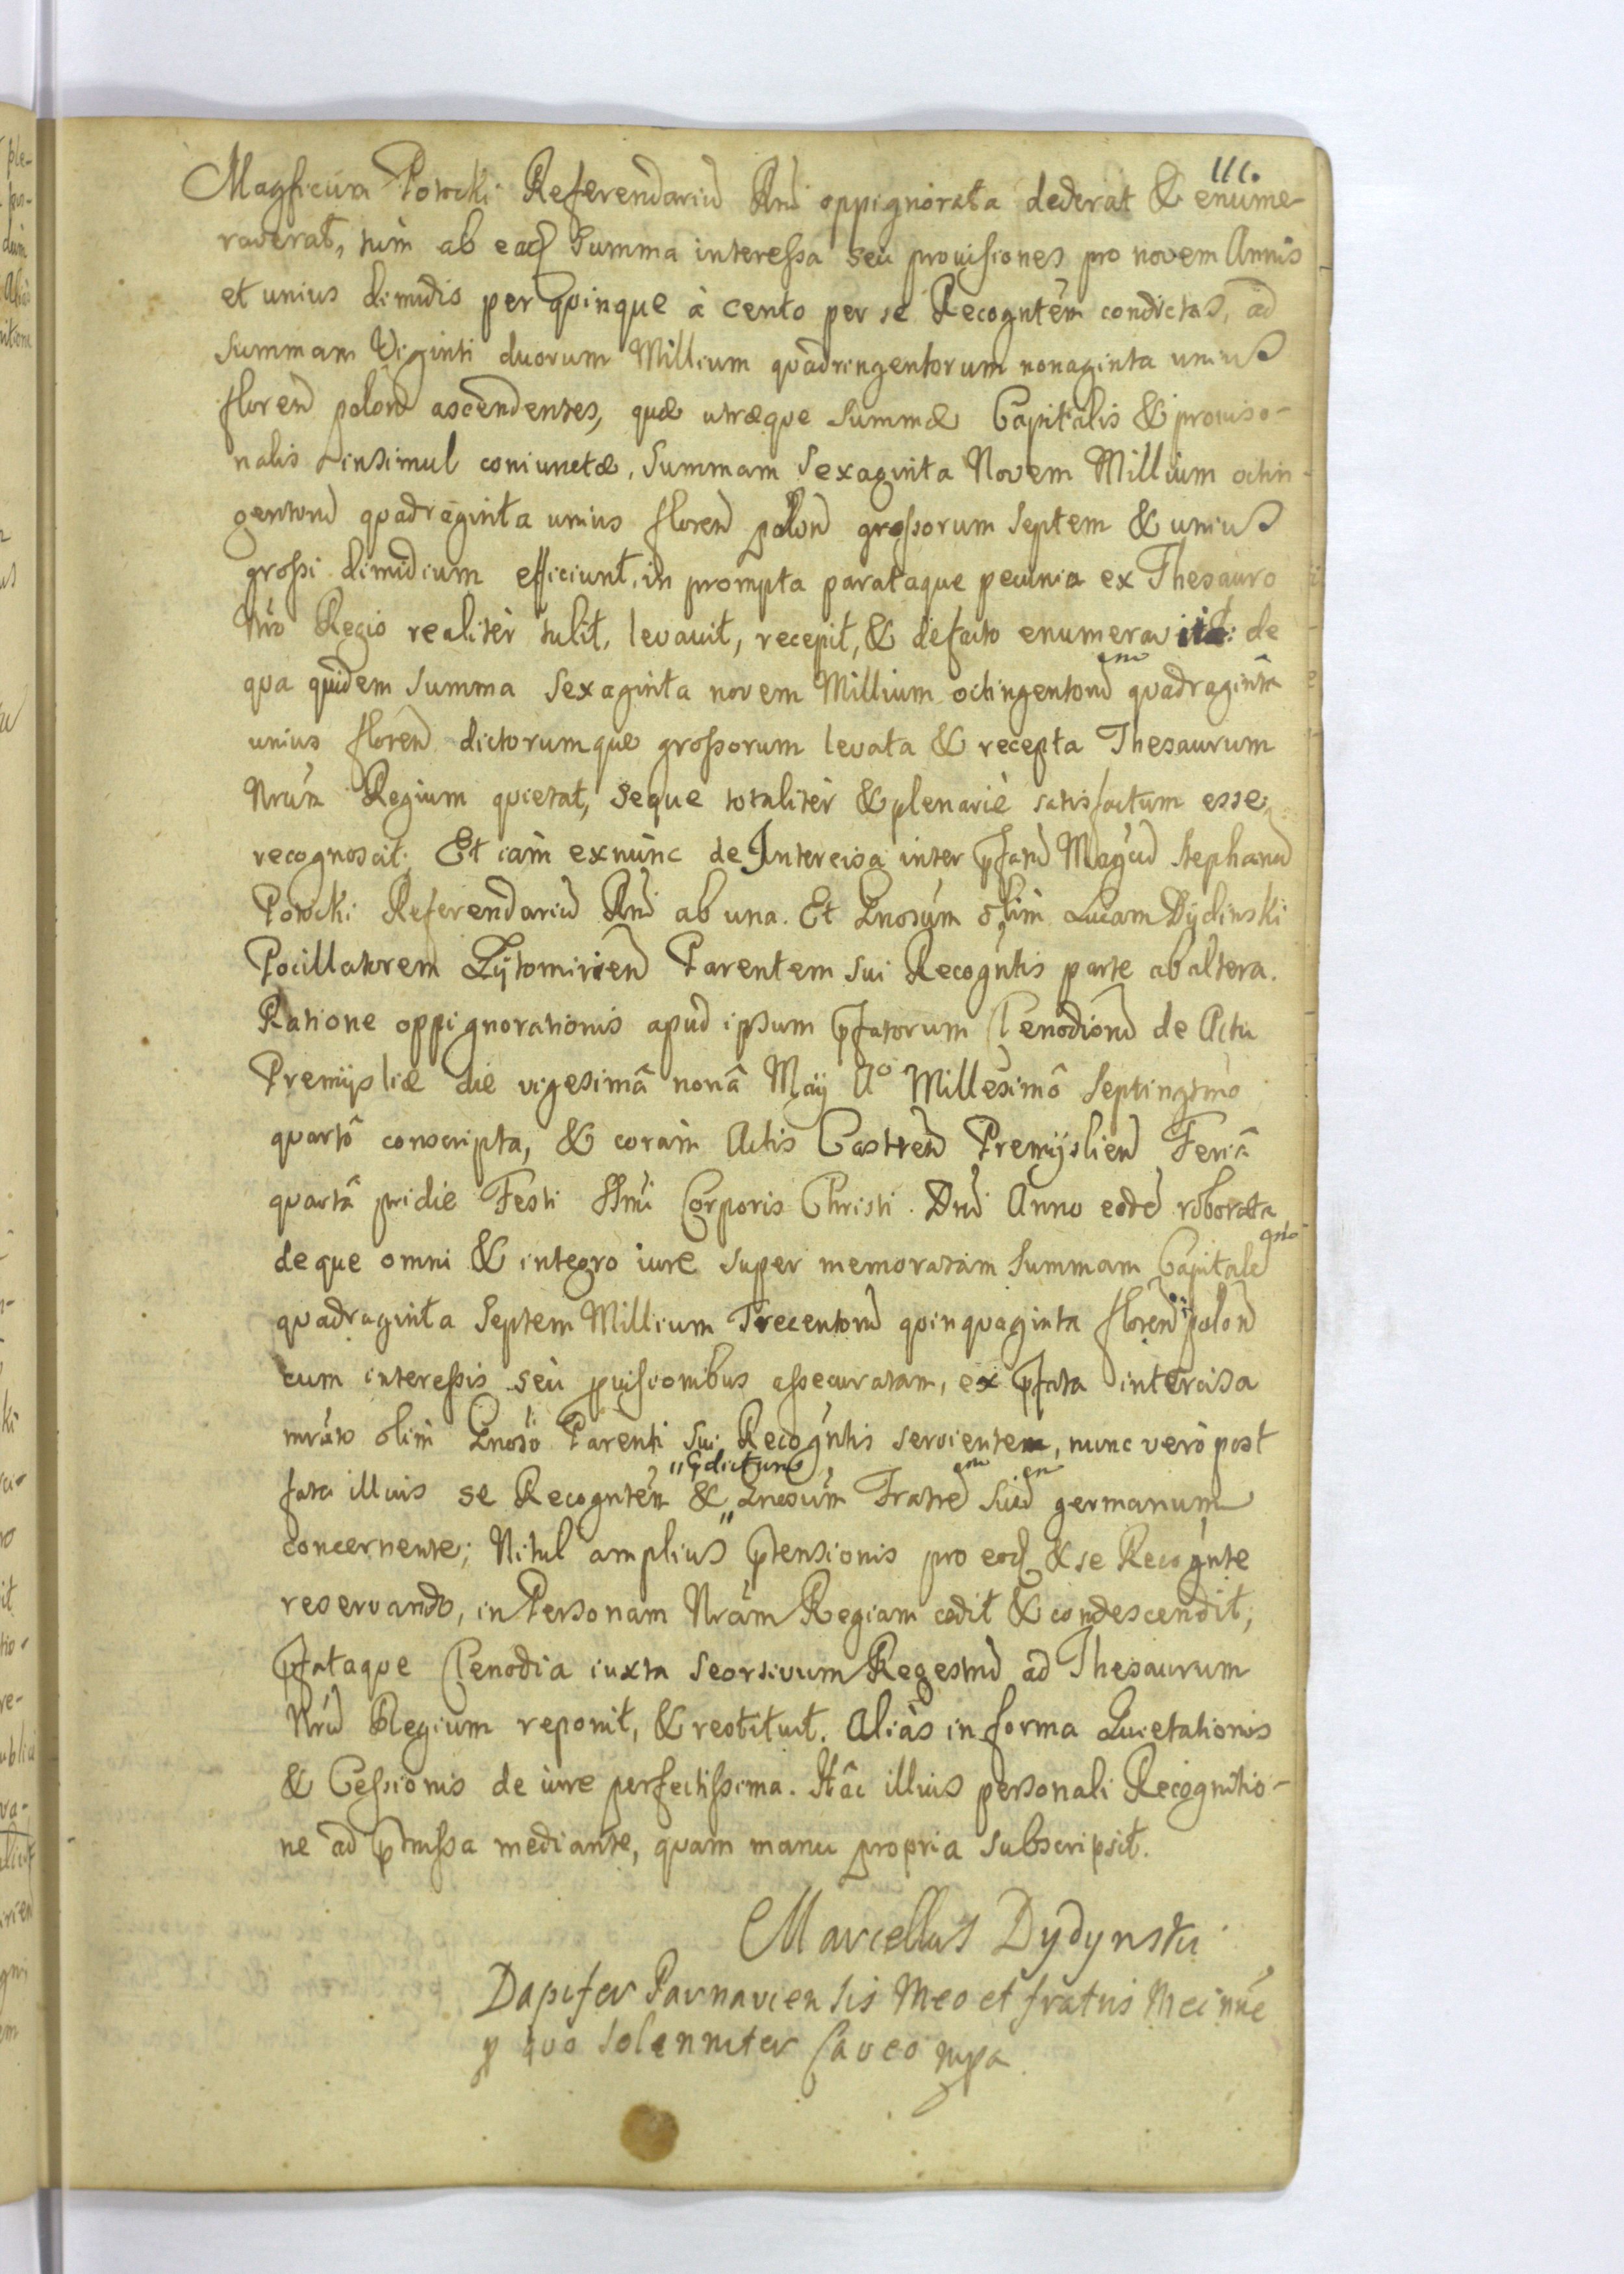 111.
Magficum Potocki Referendariu Rni oppignorata dederat & enume-
raverat, tum ab ead Summa interessa seu provisiones pro novem Annis
et unius dimidio per quinque à cento per se Recogntem condictas, ad
Summam Viginti duorum Millium quadringentorum nonaginta unius
floren polon ascendentes, quæ utræque Summæ Capitalis & proviso-
nalis insimul coniunctæ, Summam Sexaginta Novem Millium octin-
genton quadraginta unius floren polon grossorum Septem & unius
grossi dimidium efficiunt, in prompta parataque pecunia ex Thesauro
Nro Regio realiter tulit, levavit, recepit, & defacto enumeravit: de
qua quidem Summa Sexaginta novem Millium octingenton quadraginta
unius floren dictorumque grossorum levata & recepta Thesaurum
Nrum Regium quietat, seque totaliter & plenariè satisfactum esse
recognoscit; Et iam exnunc de Intercisa inter pfatu Magcu Stephanu
Potocki Referendariu Rni ab una. Et Gnosum olim Lucam Dydinski
Pocillatorem Zytomirien Parentem sui Recogntis parte ab altera.
Ratione oppignorationis apud ipsum pfatorum Clenodion de Actu
Premysliæ die vigesimâ nonâ May Aº Millesimô Septingtmo
quartô conscripta, & coram Actis Castren Premyslien Feriâ
quartâ pridie Festi SSmi Corporis Christi Dni Anno eode roborata
deque omni & integro iure super memoratam Summam Capitale
quadraginta Septem Millium Trecenton quinquaginta floren polon
cum interessis seu pvisionibus assecuratam, ex pfata intercisa
mrato olim Gnoso Parenti sui Recogntis serviente, nunc verò post
fata illius se Recogntem & " Gnosum Fratre suu germanum
" pdictum
concernente; Nihil amplius ptensionis pro eod & se Recognte
reservando, in Personam Nram Regiam cedit & condescendit;
pfataque Clenodia iuxta Seorsivum Regestru ad Thesaurum
Nru Regium reponit, & restituit. Aliàs in forma Quietationis
& Cessionis de iure perfectissima. Hâc illius personali Recognitio-
ne ad pmissa mediante, quam manu propria subscripsit.
Marcellus Dydynski
Dapifer Parnaviensis Meo et fratris Mei nñe
p quo Solenniter Caveo mpa